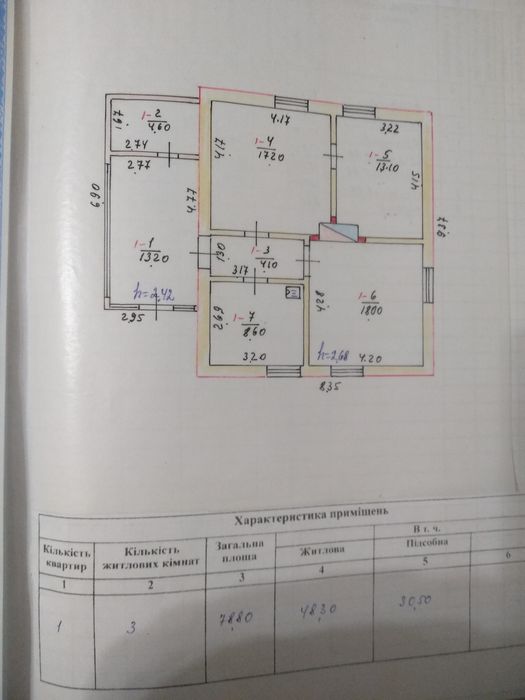 1-2
4.60
1.67
2.74
2.77
6.90
4.77
1-1
13.20
h=2,42
2.95
4.17
4.17
1-4
17.20
3,22
1-5
13.10
4.15
9.37
1.30
1-3
4.10
3.17
1-7
8.60
2.69
3.20
4.28
1-6
18.00
h=2,68
4.20
8.35
Характеристика приміщень
Кількість квартир
Кількість житлових кімнат
Загальна площа
В т. ч.
Житлова
Підсобна
1
2
3
4
5
6
1
3
78.80
48.30
30.50